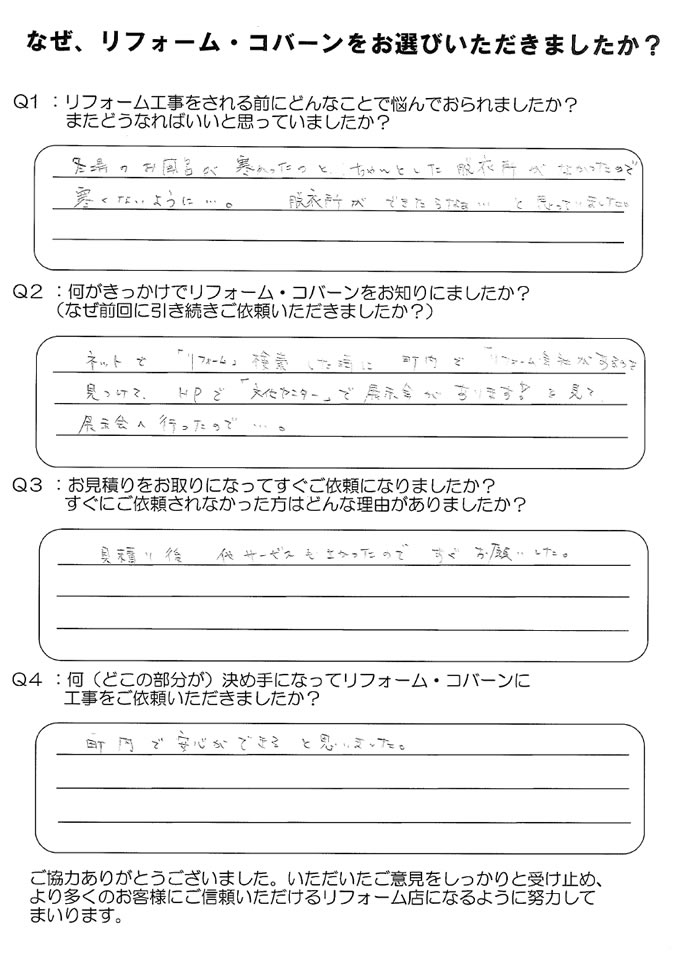 なぜ、リフォーム・コバーンをお選びいただきましたか？
Q1 ：リフォーム工事をされる前にどんなことで悩んでおられましたか？
またどうなればいいと思っていましたか？
冬場のお風呂が寒かったのと、ちゃんとした脱衣所がなかったので
寒くないように…。 脱衣所ができたらなぁ… と思っていました。
Q2 ：何がきっかけでリフォーム・コバーンをお知りにましたか？
（なぜ前回に引き続きご依頼いただきましたか？）
ネットで 「リフォーム」 検索した時に 町内で 「リフォーム会社が
見つけて、 HPで 「文化センター」で展示会があります!! を見て、
展示会へ行ったので…。
Q3 ：お見積りをお取りになってすぐご依頼になりましたか？
すぐにご依頼されなかった方はどんな理由がありましたか？
見積り後 サービスも よかったので すぐ お願いした。
Q4 ：何（どこの部分が）決め手になってリフォーム・コバーンに
工事をご依頼いただきましたか？
町内で 安心ができる と思いました。
ご協力ありがとうございました。いただいたご意見をしっかりと受け止め、
より多くのお客様にご信頼いただけるリフォーム店になるように努力して
まいります。